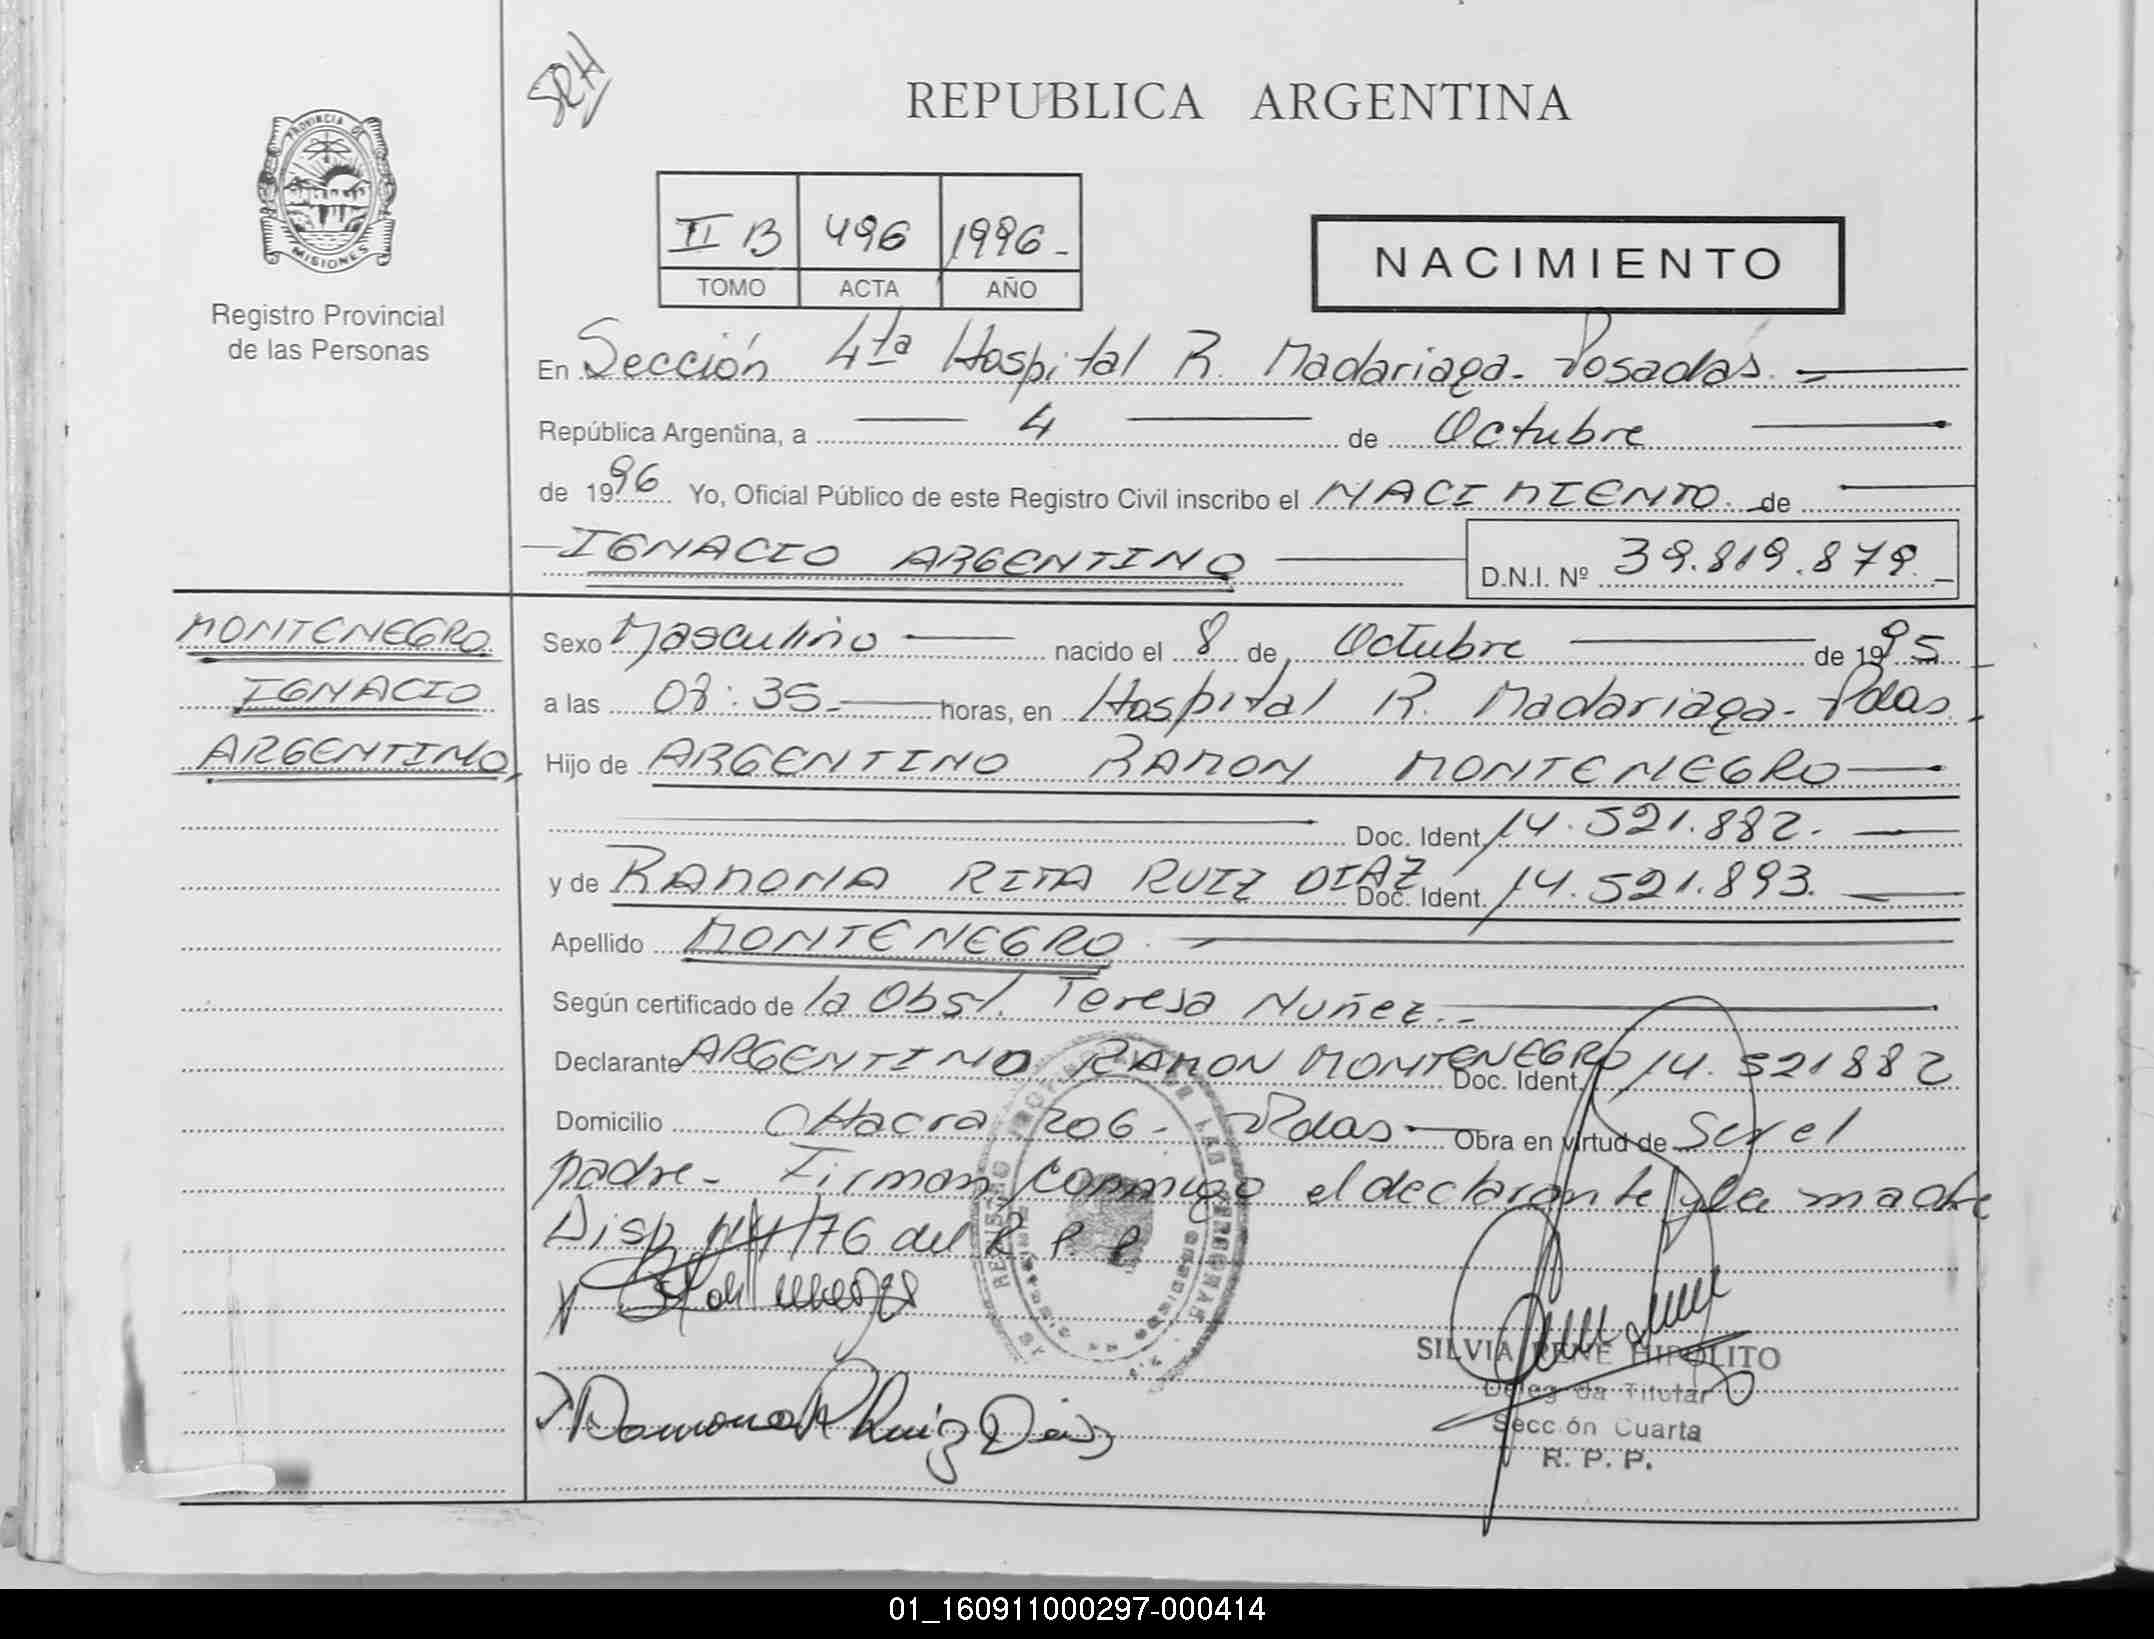 SRH
REPUBLICA ARGENTINA
PROVINCIA DE
MISIONES
Registro Provincial
de las Personas
II B 496 1996-
TOMO ACTA AÑO
NACIMIENTO
En Sección 4ta Hospital R. Madariaga- Posadas.-
República Argentina, a 4 de Octubre
de 1996 Yo, Oficial Público de este Registro Civil inscribo el NACIMIENTO de
IGNACIO ARGENTINO D.N.I. Nº 39.819.879.-
MONTENEGRO
IGNACIO
ARGENTINO,
Sexo Masculino nacido el 8 de Octubre de 1995
a las 08:35.- horas, en Hospital R. Madariaga- Pdas.
Hijo de ARGENTINO RAMON MONTENEGRO
Doc. Ident. 14.521.882.
y de RAMONA RITA RUIZ DIAZ Doc. Ident. 14.521.893.
Apellido MONTENEGRO.
Según certificado de la Obst. Teresa Nuñez.-
Declarante ARGENTINO RAMON MONTENEGRO Doc. Ident. 14.521882
Domicilio CHacra 206- Pdas Obra en virtud de Ser el
padre- Firman conmigo el declarante y la madre
Disp. /76 del R. P. P
Ramona R Ruiz Diaz
SILVIA RENE HIPOLITO
Delegada Titular
Sección Cuarta
R. P. P.
01_160911000297-000414